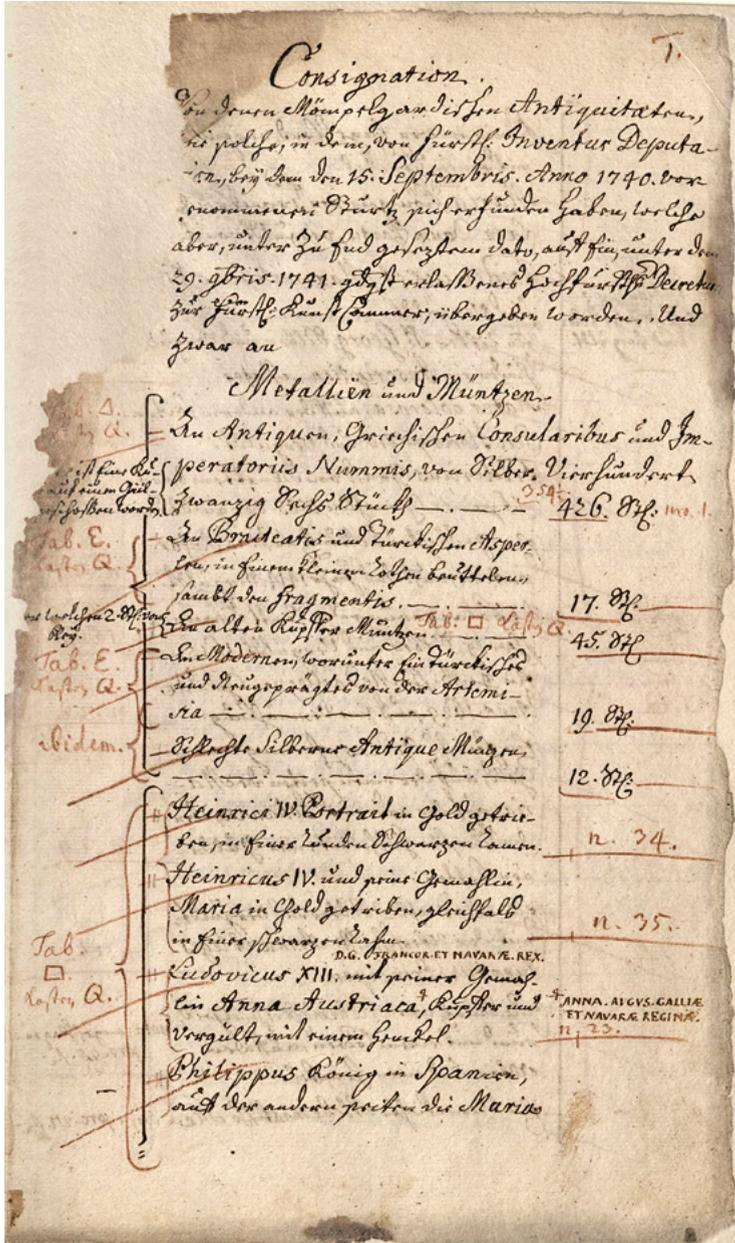 1.
Consignation.
Von denen Mömpelgardischen Antiquitaeten,
wie solche, in dem, von Fürstl: Inventur Deputa-
, bey dem den 15. Septembris. Anno 1740. vor
genommenen Sturtz sich erfunden haben, welche
aber, unter zu End geseztem dato, auf Ein, unter dem
29. 9bris. 1741. gdgst erlaßenes Hochfürstl: Decretum
zur Fürstl: Kunst Cammer, übergeben worden. Und
zwar an
Metallien und Müntzen.
Q.
An Antiquen, Griechischen Consularibus und Im-
peratoriis Nummis, von Silber. Vierhundert
zwanzig Sechs Stückh — . — . — 354. 426. Stk: no. 1.
ist Eine
auf einem
Tab. E.
Kasten Q.
An Bracteatis und Türckischen Asper-
len, in Einem kleinen rothen beuttelen,
sambt den Fragmentis. — . — 17. Stk:
welchen 2. Stk.
An alten Kupffer Müntzen. Tab: □ Kasten Q. 45. Stk
Tab. E.
Kasten Q.
An Modernen, worunter Ein Türckisches
und Neugeprägtes von der Artemi-
sia — . — . — . — . — 19. Stk:
ibidem.
Schlechte Silberne Antique Müntzen,
— . — . — . — . — 12. Stk:
Heinrici IV. Portrait in Gold getrie-
ben, in Einer runden Schwarzen Ramen. n. 34.
Heinricus IV. und seine Gemahlin,
Maria in Gold getriben, gleichfals
in Einer schwarzen Rahm. n. 35.
D.G. FRANCOR. ET NAVARÆ. REX.
Tab.
□
Kasten Q.
Ludovicus XIII. mit seiner Gemah-
lin Anna Austriaca, Kupffer und
vergült, mit einem Henckel.
ANNA. AUGVS. GALLIÆ
ET NAVARÆ REGINÆ.
n. 23.
Philippus König in Spanien,
auf der andern seiten die Maria